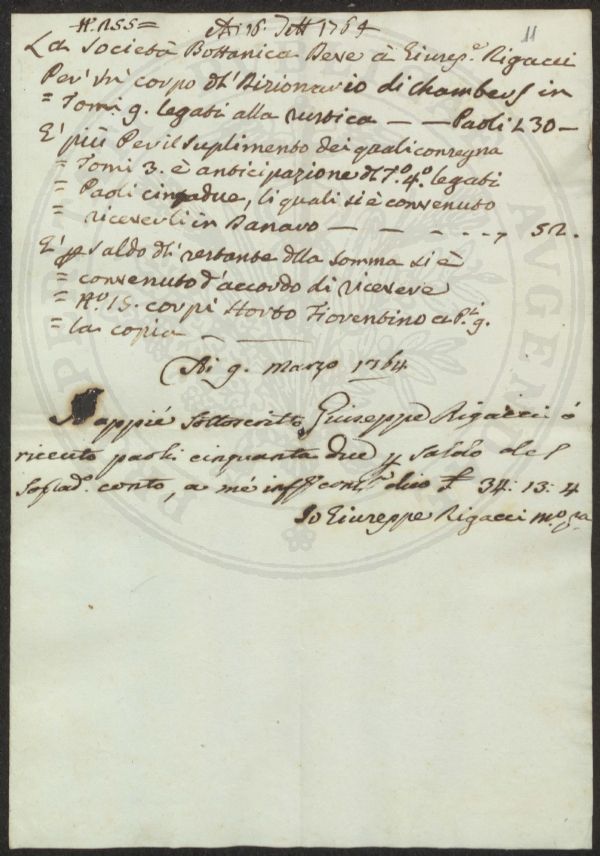 N.° 155= Ai 16 Sett 1764 11
La Società Bottanica Deve à Giusep.e Rigacci
Per Un' corpo dl' Dizionario di Chambers in
= Tomi 9. legati alla rustica — — Paoli 130 —
E' più Per il Suplimento dei quali consegna
= Tomi 3. è anticipazione dl 7.° 4.° legati
= Paoli cinqadue, li quali si è convenuto
= riceverli in Danaro — — - . . , 52.
E' p saldo dl' restante dlla somma si è
= convenuto d'accordo di ricevere
= N.° 15. corpi Horto Fiorentino a P.li 9.
= la copia — —
Ai 9. Marzo 1764
Io appié sottoscritto Giuseppe Rigacci ò
riceuto paoli cinquanta due p saldo del
Sop.ad.o conto, a mé in cont.i dico £ 34: 13: 4
Io Giuseppe Rigacci m.o p.a